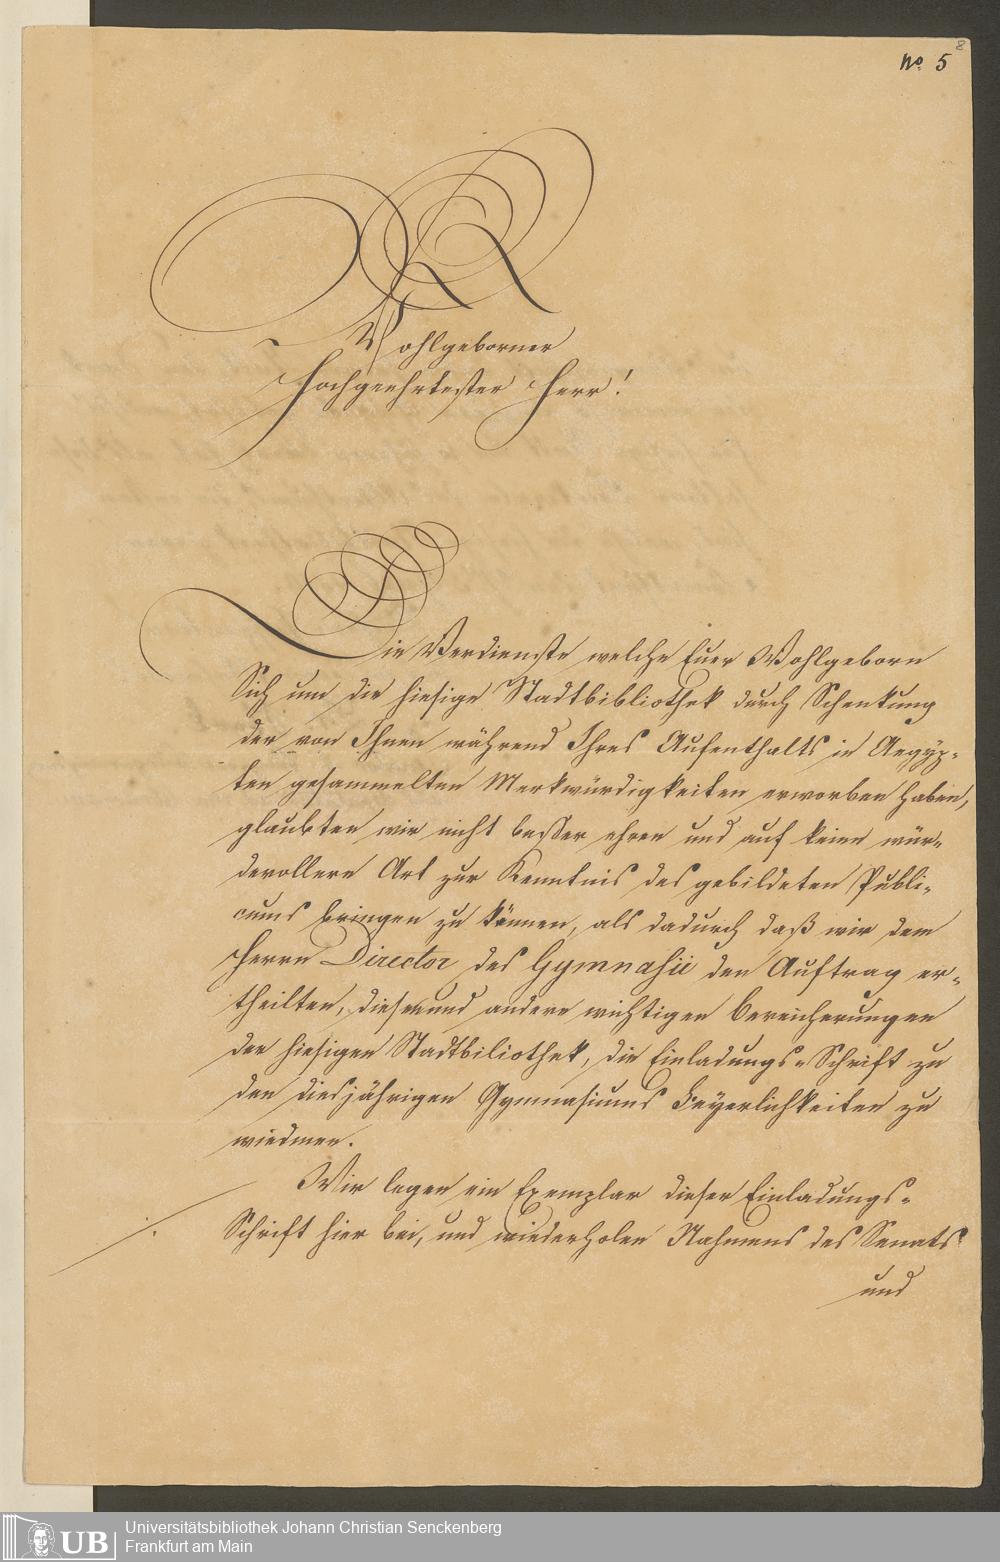 8
No. 5
Wohlgeborner
Hochgeehrtester Herr!
Die Verdienste welche Euer Wohlgeborn
Sich um die hiesige Stadtbibliothek durch Schenkung
der von Ihnen während Ihres Aufenthalts in Aegyp-
ten gesammelten Merkwürdigkeiten erworben haben,
glaubten wir nicht besser ehren und auf keine wür-
devollere Art zur Kenntnis des gebildeten Publi-
cums bringen zu können, als dadurch daß wir dem
Herrn Director des Gymnasii den Auftrag er-
theilten, diesen und andern wichtigen Bereicherungen
der hiesigen Stadtbiliothek, die Einladungs-Schrift zu
den diesjährigen Gymnasiums Feyerlichkeiten zu
wiedmen.
Wir legen ein Exemplar dieser Einladungs-
Schrift hier bei, und wiederholen Nahmens des Senats
und
UB
Universitätsbibliothek Johann Christian Senckenberg
Frankfurt am Main